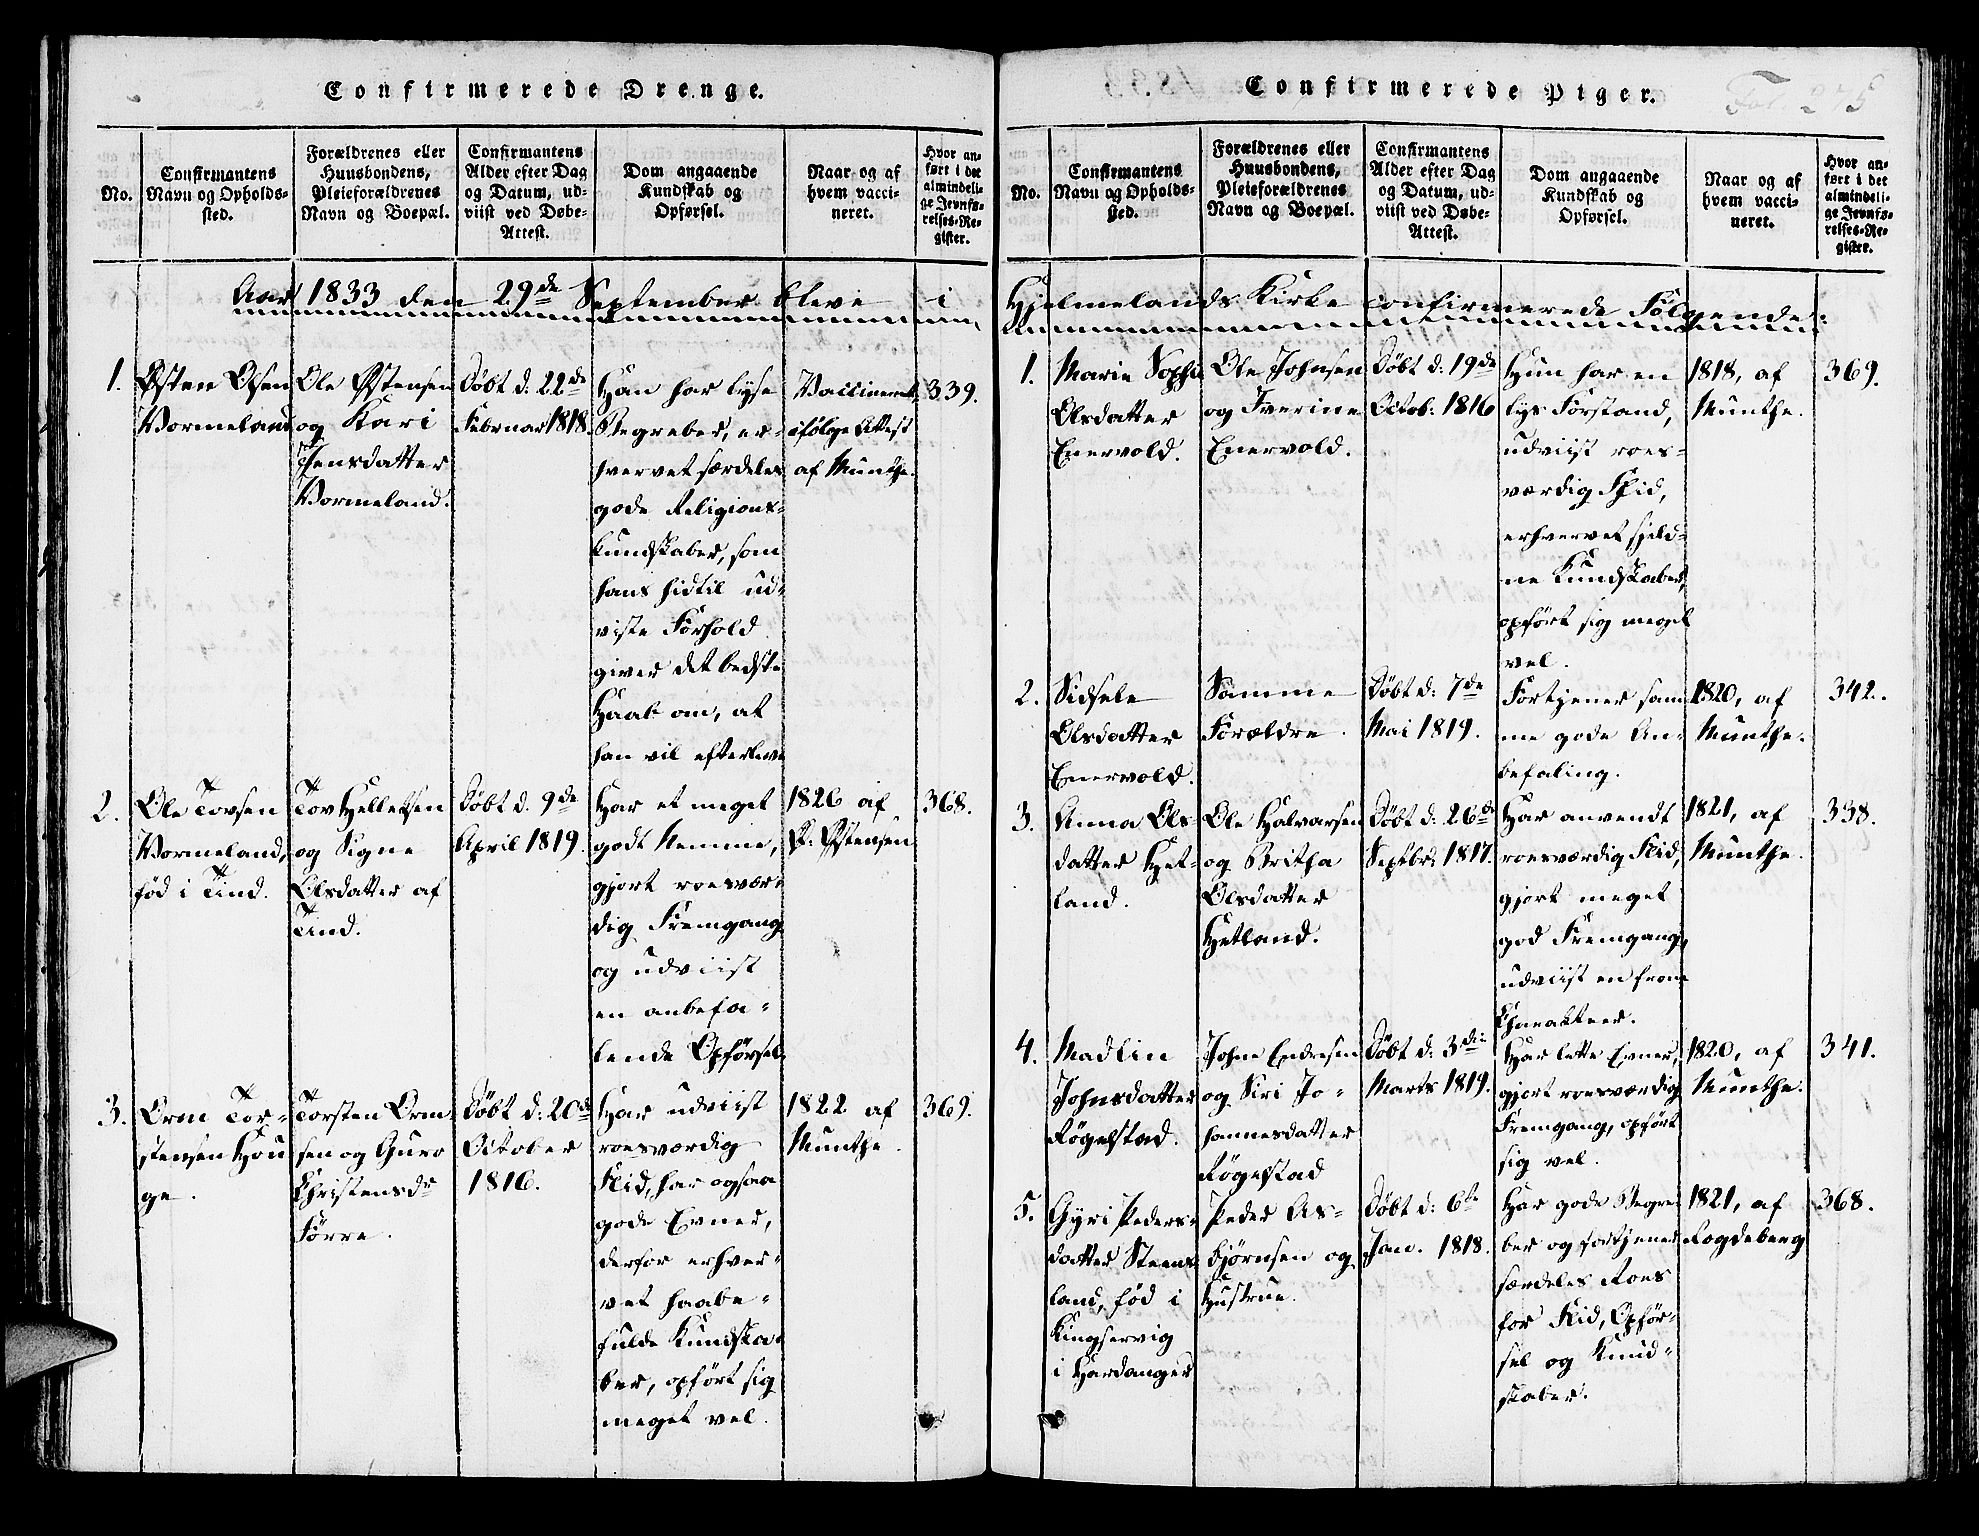 Confirmerede Drenge.
No.
Confirmantens
Navn og Opholds-
sted.
Forældrenes eller
Huusbondens,
Pleieforældrenes
Navn og Boepæl.
Confirmantens
Alder efter Dag
og Datum, ud-
viist ved Døbe-
Attest.
Dom angaaende
Kundskab og
Opførsel.
Naar og af
hvem vacci-
neret.
Hvor an-
ført i det
almindeli-
ge Jevnfø-
relses-Re-
gister.
Aar 1833 den 29de September bleve i
1.
Østen Osen
Vormeland
Ole Østensen
og Kari
Jensdatter
Vormeland.
Døbt d. 22de
Februar 1818.
Han har lyse
Begreber, er-
hvervet særdeles
gode Religions-
kundskaber, som
hans hidtil ud-
viste Forhold
giver det bedste
Haab om, at
han vil efterleve
Vaccineret
ifølge Attest
af Munthe.
339.
2.
Ole Tovsen
Vormeland,
fød i Tind.
Tov Helletsen
og Signe
Olsdatter af
Tind.
Døbt d. 9de
April 1819.
Har et meget
godt Nemme,
gjort roesvær-
dig Fremgang
og udviist
en anbefa-
lende Opførsel.
1826 af
P. Østensen
368.
3.
Orm Tor-
stensen Hou
ge.
Torsten Orm
sen og Guro
Christensdr
Førre.
Døbt d: 20de
October
1816.
Har udviist
roesværdig
Flid, har ogsaa
gode Evner,
derfor erhver-
vet haabe-
fulde Kundska-
ber, opført sig
meget vel.
1822 af
Munthe.
369.
Confirmerede Piger.
Fol. 275
No.
Confirmantens
Navn og Opholds-
sted.
Forældrenes eller
Huusbondens,
Pleieforældrenes
Navn og Boepæl.
Confirmantens
Alder efter Dag
og Datum, ud-
viist ved Døbe-
Attest.
Dom angaaende
Kundskab og
Opførsel.
Naar og af
hvem vacci-
neret.
Hvor an-
ført i det
almindeli-
ge Jevnfø-
relses-Re-
gister.
Hjelmelands Kirke confirmerede Følgende:
1.
Marie Sophie
Olsdatter
Enervold.
Ole Johnsen
og Iverine
Enervold.
Døbt d. 19de
Octob: 1816
Hun har en
lys Forstand,
udviist roes-
værdig Flid,
erhvervet sjeld-
ne Kundskaber,
opført sig meget
vel.
1818, af
Munthe.
369.
2.
Sidsele
Olsdatter
Enervold.
Samme
Forældre.
Døbt d: 7de
Mai 1819.
Fortjener sam
me gode An-
befaling.
1820, af
Munthe.
342.
3.
Anna Ols-
datter Het-
land.
Ole Halvarsen
og Britha
Olsdatter
Hetland.
Døbt d: 26de
Septbr. 1817.
Har anvendt
roesværdig Flid,
gjort meget
god Fremgang,
udviist en from
Charakteer.
1821, af
Munthe.
338.
4.
Madlin
Johnsdatter
Røgelstad.
John Endresen
og Siri Jo-
hannesdatter
Røgelstad
Døbt d: 3die
Marts 1819.
Har lette Evner,
gjort roesværdig
Fremgang, opført
sig vel.
1820, af
Munthe.
341.
5.
Gyri Peders-
datter Steens
land, fød i
Kingservig
i Hardanger
Peder As-
bjørnsen og
Hustrue.
Døbt d: 6te
Jan. 1818.
Har gode Begre
ber og fortjener
særdeles Roes
for Flid, Opfør-
sel og Kund-
skaber.
1821, af
Rogdeberg
368.